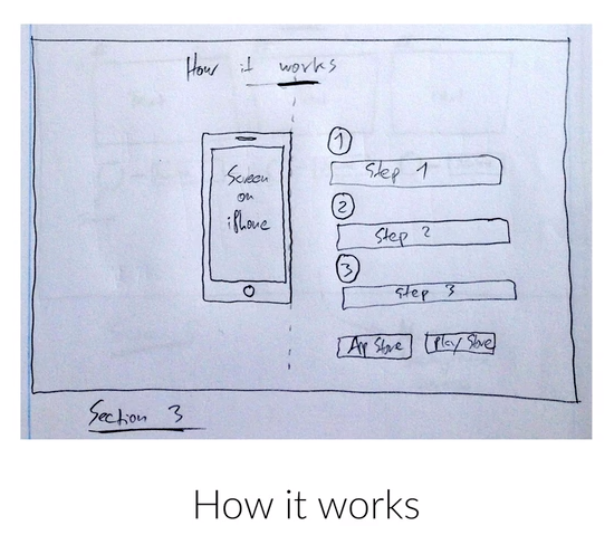 How it works
Screen
on
iPhone
1
Step 1
2
Step 2
3
Step 3
App Store
Play Store
Section 3
How it works